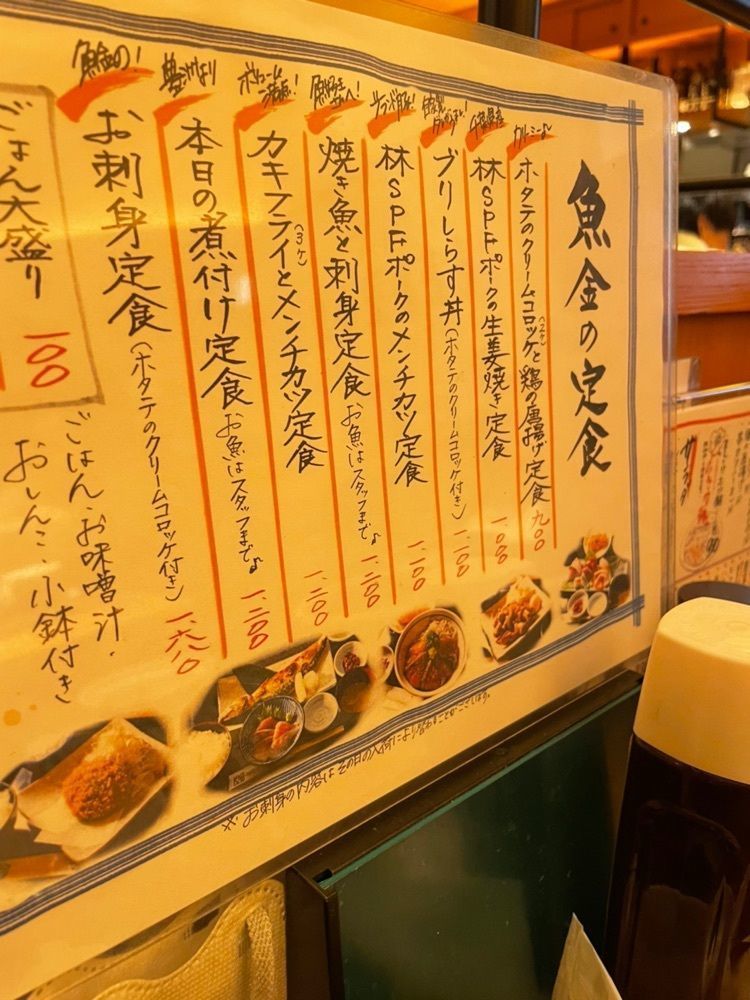 魚金の定食
ホタテのクリームコロッケ(2ケ)と鶏の唐揚げ定食 九〇〇
林SPFポークの生姜焼き定食 一、〇〇〇
ブリしらす丼(ホタテのクリームコロッケ付き) 一、一〇〇
林SPFポークのメンチカツ定食 一、一〇〇
魚好きさんへ!
焼き魚と刺身定食 お魚はスタッフまで♪ 一、二〇〇
ボリューム満点!
カキフライ(3ケ)とメンチカツ定食 一、二〇〇
本日の煮付け定食 お魚はスタッフまで♪ 一、二〇〇
魚金の!
お刺身定食(ホタテのクリームコロッケ付き) 一、六八〇
ごはん大盛り 一〇〇
ごはん・お味噌汁・
おしんこ・小鉢付き
※お刺身の内容はその日の入荷により異なることがございます。
サラダ